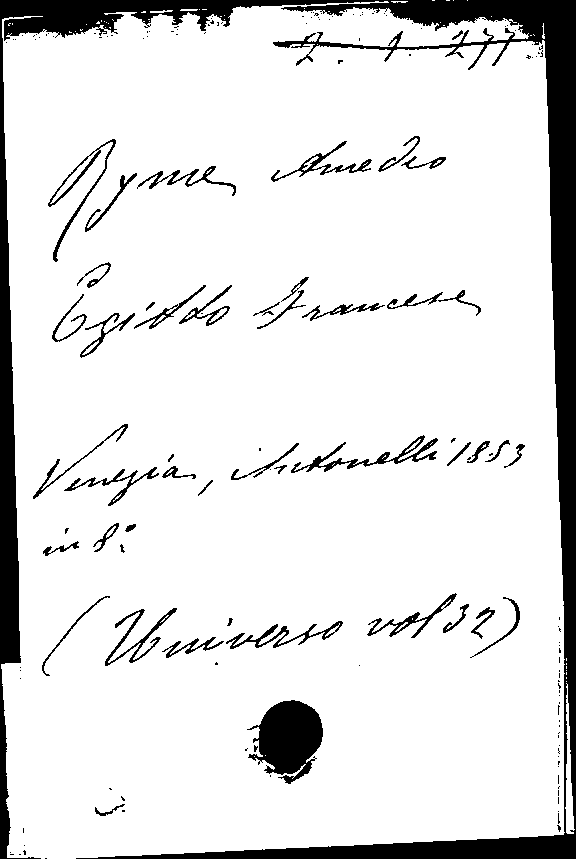 2. 1. 277
Ryme Amedeo
Egitto Francese
Venezia, Antonelli 1853
in 8º
(Universo vol 32)